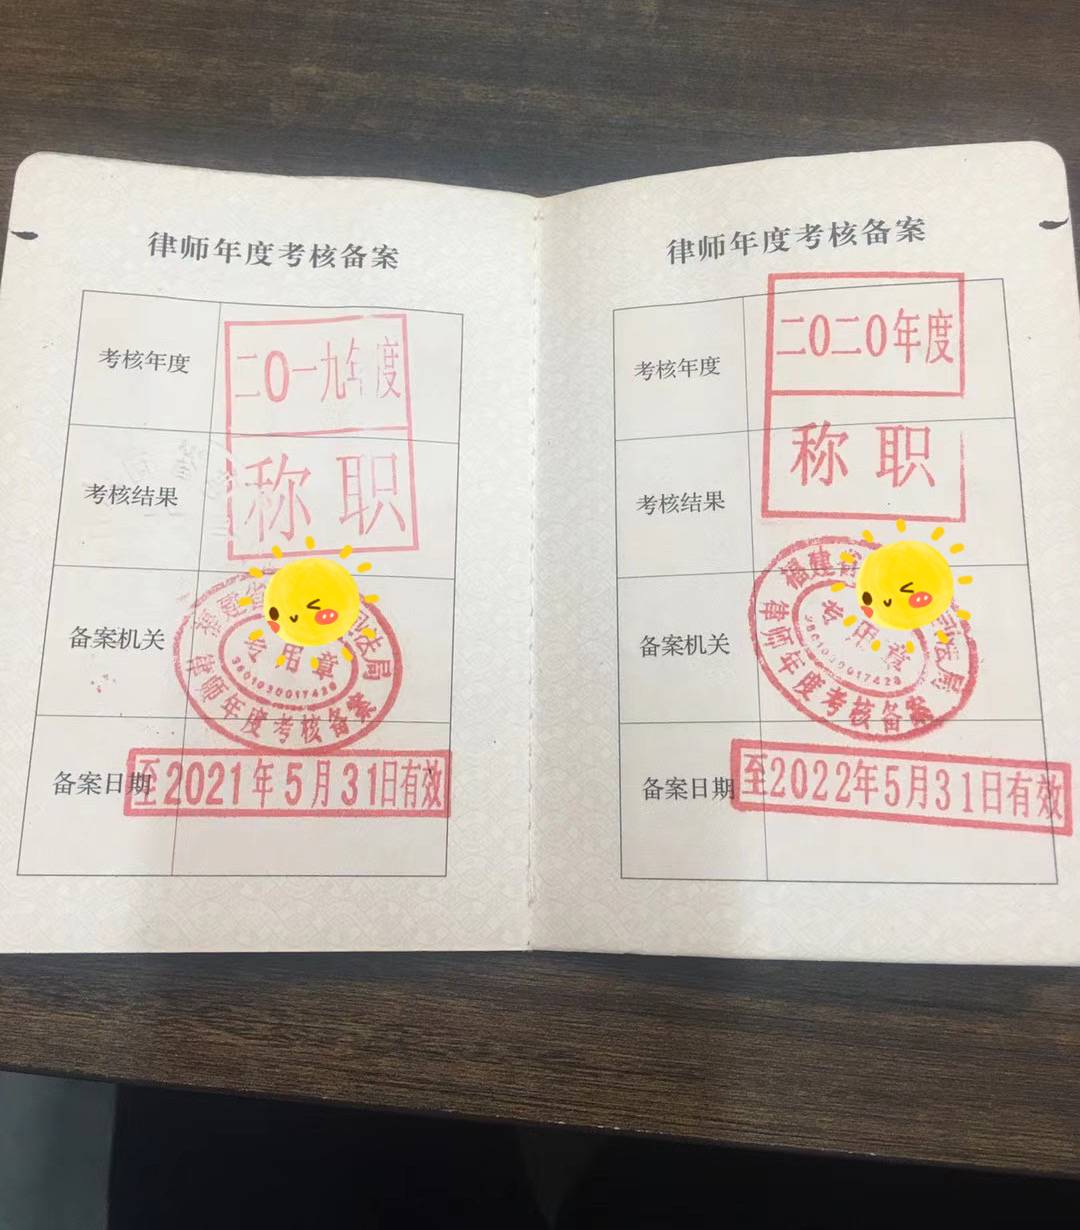 律师年度考核备案
考核年度
二〇一九年度
考核结果
称职
备案机关
福建省
司法局
专用章
律师年度考核备案
备案日期
至2021年5月31日有效
律师年度考核备案
考核年度
二〇二〇年度
考核结果
称职
备案机关
福建省
司法局
专用章
律师年度考核备案
备案日期
至2022年5月31日有效